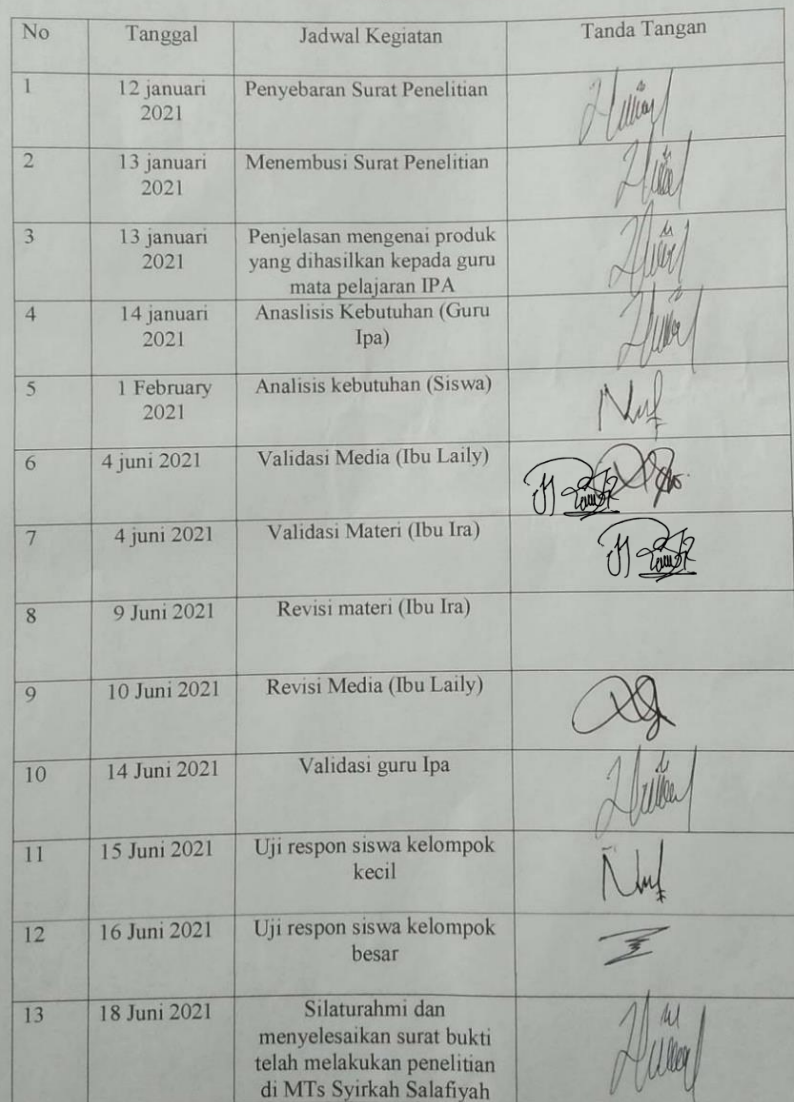 No Tanggal Jadwal Kegiatan Tanda Tangan
1 12 januari Penyebaran Surat Penelitian
2021
2 13 januari Menembusi Surat Penelitian
2021
3 13 januari Penjelasan mengenai produk
2021 yang dihasilkan kepada guru
mata pelajaran IPA
4 14 januari Anaslisis Kebutuhan (Guru
2021 Ipa)
5 1 February Analisis kebutuhan (Siswa)
2021
6 4 juni 2021 Validasi Media (Ibu Laily)
7 4 juni 2021 Validasi Materi (Ibu Ira)
8 9 Juni 2021 Revisi materi (Ibu Ira)
9 10 Juni 2021 Revisi Media (Ibu Laily)
10 14 Juni 2021 Validasi guru Ipa
11 15 Juni 2021 Uji respon siswa kelompok
kecil
12 16 Juni 2021 Uji respon siswa kelompok
besar
13 18 Juni 2021 Silaturahmi dan
menyelesaikan surat bukti
telah melakukan penelitian
di MTs Syirkah Salafiyah